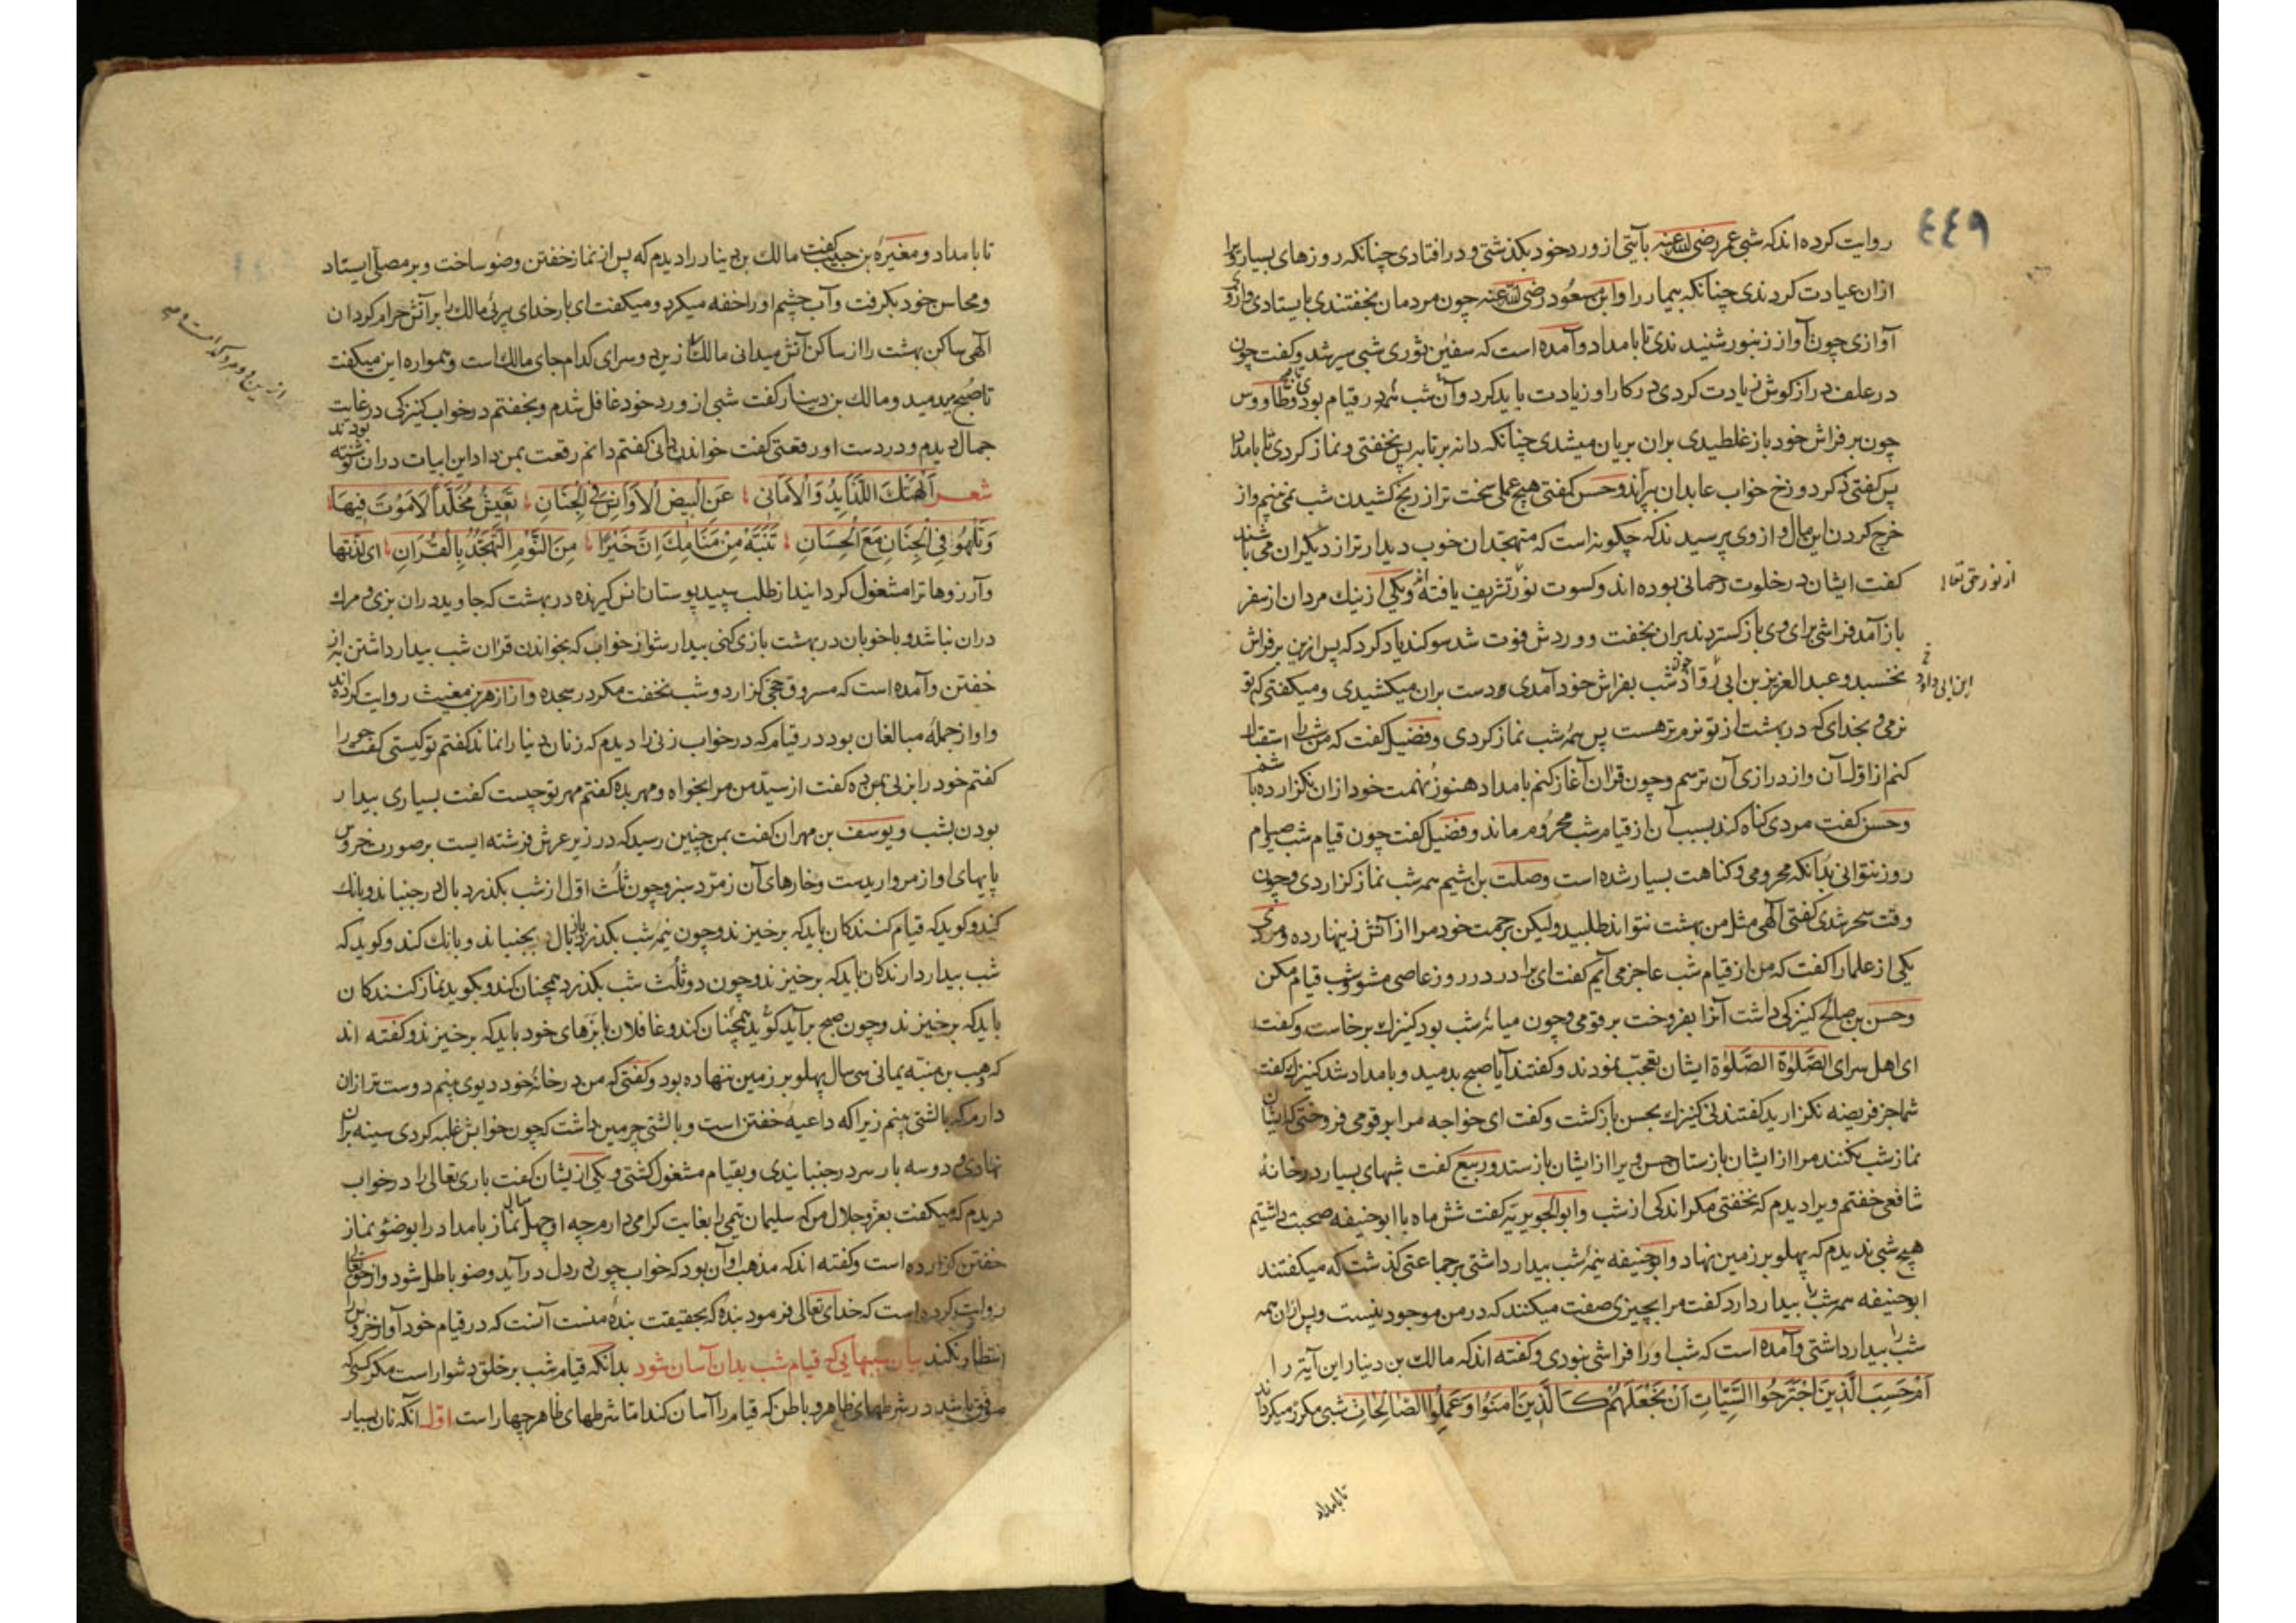 ٤٤٩
روایت کرده اند که شبی عمر رضی الله عنه بآیتی از ورد خود بکذشتی و در افتادی چنانکه روزهای بسیار ویرا
ازان عیادت کردندی چنانکه بیمار را و ابن مسعود رضی الله عنه چون مردمان بخفتندی بایستادی و از وی
آوازی چون آواز زنبور شنیدندی تا بامداد و آمده است که سفین ثوری شبی سیر شد و کفت چون
در علف درازکوش زیادت کردی در کار او زیادت باید کرد و آن شب همه در قیام بودی تا بامداد و طاووس
چون بر فراش خود باز غلطیدی بران بریان میشدی چنانکه دانه بر تابه پس نخفتی و نماز کردی تا بامداد
پس کفتی ذکر دوزخ خواب عابدان ببرانید و حسن کفتی هیچ عملی سخت تر از رنج کشیدن شب نمی بینم و از
خرج کردن این مال و از وی پرسیدند که چکونه است که متهجدان خوب دیدارتر از دیکران می باشند
کفت ایشان در خلوت رحمانی بوده اند و کسوت نور تشریف یافته اند و یکی از نیك مردان از سفر
از نور حق تعالی
باز آمد فراشی برای وی باز کستردند بران بخفت و وردش فوت شد سوکند یاد کرد که پس ازین بر فراش
نخسبد و عبد العزیز بن ابی روّاد چون شب بفراش خود آمدی و دست بران میکشیدی و میکفتی که تو
ابن ابی داود
نرمی و بخدای که در بهشت از تو نرم تر هست پس همه شب نماز کردی و فضیل کفت که من شب را استقبال
کنم از اول آن و از درازی آن ترسم و چون قرآن آغاز کنم بامداد هنوز نهمت خود ازان نکزارده باشم
و حسن کفت مردی کناه کند بسبب آن از قیام شب محروم ماند و فضیل کفت چون قیام شب و صیام
روز نتوانی بدانکه محرومی و کناهت بسیار شده است و صلت بن اشیم همه شب نماز کزاردی و چون
وقت سحر شدی کفتی الهی مثل من بهشت نتواند طلبید ولیکن برحمت خود مرا از آتش زینهار ده و مردی
یکی از علما را کفت که من از قیام شب عاجز می آیم کفت ای برادر در روز عاصی مشو و شب قیام مکن
و حسن بن صالح کنیزکی داشت آنرا بفروخت بر قومی و چون میانه شب بود کنیزك برخاست و کفت
ای اهل سرای الصّلوة الصّلوة ایشان تعجب نمودند و کفتند آیا صبح بدمید و بامداد شد کنیزك کفت
شما جز فریضه نکزارید کفتند نی کنیزك بحسن باز کشت و کفت ای خواجه مرا بر قومی فروختی که ایشان
نماز شب نکنند مرا از ایشان باز ستان حسن ویرا از ایشان باز ستد و ربیع کفت شبهای بسیار در خانهٔ
شافعی خفتم ویرا دیدم که نخفتی مکر اندکی از شب و ابو الجویریه کفت شش ماه با ابو حنیفه صحبت داشتم
هیچ شبی ندیدم که پهلو بر زمین نهاد و ابو حنیفه نیمهٔ شب بیدار داشتی بر جماعتی کذشت که میکفتند
ابو حنیفه همه شب بیدار دارد کفت مرا بچیزی صفت میکنند که در من موجود نیست و پس ازان همه
شب را بیدار داشتی و آمده است که شب او را فراشی نبودی و کفته اند که مالك بن دینار این آیت را
اَمْ حَسِبَ الَّذِینَ اجْتَرَحُوا السَّیِّاٰتِ اَنْ نَجْعَلَهُمْ کَالَّذِینَ اٰمَنُوا وَعَمِلُوا الصَّالِحَاتِ شبی مکرر میکردانید
تا بامداد
تا بامداد و مغیره بن حبیب کفت مالك بن دینار را دیدم که پس از نماز خفتن وضو ساخت و بر مصلی ایستاد
و محاسن خود بکرفت و آب چشم او را خفه میکرد و میکفت ای بار خدای پیری مالك را بر آتش حرام کردان
الهی ساکن بهشت را از ساکن آتش میدانی مالك ازین دو سرای کدام جای مالك است و همواره این میکفت
تا صبح بدمید و مالك بن دینار کفت شبی از ورد خود غافل شدم و بخفتم در خواب کنیزکی در غایت
جمال دیدم و در دست او رقعتی کفت خواندن دانی کفتم دانم رقعت بمن داد این ابیات دران نوشته بودند
شعر اَلْهَتْكَ اللَّذَایِدُ وَالْاَمَانِی عَنِ الْبِیضِ الْاَوَانِسِ فِی الْجِنَانِ تَعِیشُ مُخَلَّدًا لَا مَوْتَ فِیهَا
وَتَلْهُو فِی الْجِنَانِ مَعَ الْحِسَانِ تَنَبَّهْ مِنْ مَنَامِكَ اِنَّ خَیْرًا مِنَ النَّوْمِ التَّهَجُّدُ بِالْقُرَانِ ای لذتها
و آرزوها ترا مشغول کردانید از طلب سپید پوستان انس کیرنده در بهشت که جاوید دران بزی و مرك
دران نباشد و با خوبان در بهشت بازی کنی بیدار شو از خواب که بخواندن قرآن شب بیدار داشتن به از
خفتن و آمده است که مسروق حج کزارد و شب نخفت مکر در سجده و از ازهر بن مغیث روایت کرده اند
و او از جملهٔ مبالغان بود در قیام که در خواب زنی را دیدم که زنان دنیا را نماند کفتم تو کیستی کفت حورا
کفتم خود را بزنی بمن ده کفت از سیّد من مرا بخواه و مهر بده کفتم مهر تو چیست کفت بسیاری بیدار
بودن بشب و یوسف بن مهران کفت بمن چنین رسید که در زیر عرش فرشته ایست بر صورت خروس
پایهای او از مروارید است و خارهای آن زمرد سبز و چون ثلث اول از شب بکذرد بال در جنباند و بانك
کند و کوید که قیام کنندکان باید که برخیزند و چون نیمه شب بکذرد باز بال بجنباند و بانك کند و کوید که
شب بیدار دارندکان باید که برخیزند و چون دو ثلث شب بکذرد همچنان کند و بکوید نماز کنندکان
باید که برخیزند و چون صبح برآید کوید همچنان کند و غافلان با بزهای خود باید که برخیزند و کفته اند
که وهب بن منبه یمانی سی سال پهلو بر زمین ننهاده بود و کفتی که من در خانهٔ خود دیوی بینم دوست تر ازان
دارم که بالشتی بینم زیرا که داعیهٔ خفتن است و بالشتی چرمین داشت که چون خوابش غلبه کردی سینه بران
نهادی و دو سه بار سر در جنبانیدی و بقیام مشغول کشتی و یکی از ایشان کفت باری تعالی را در خواب
دیدم که میکفت بعز و جلال من که سلیمان تیمی را بغایت کرامی دارم چه او چهل سال نماز بامداد را بوضو نماز
خفتن کزارده است و کفته اند که مذهب او آن بود که خواب چون در دل درآید وضو باطل شود و از حق تعالی
روایت کرده است که خدای تعالی فرمود بنده که بحقیقت بندهٔ منست آنست که در قیام خود آواز خروس را
انتظار نکند بیان سببهایی که قیام شب بدان آسان شود بدانکه قیام شب بر خلق دشوار است مکر کسی که
موفق باشد در شرطهای ظاهر و باطن که قیام را آسان کند اما شرطهای ظاهر چهار است اول آنکه نان بسیار